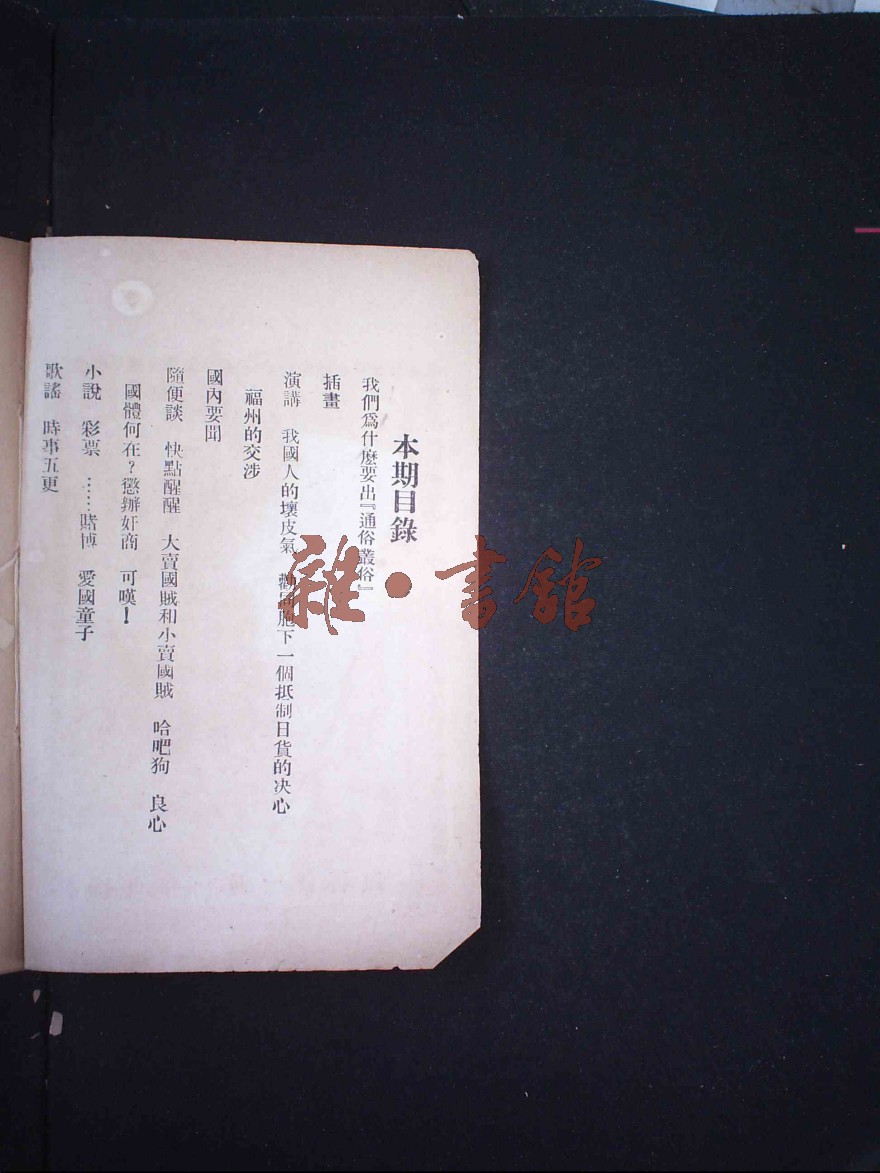 本期目錄
我們爲什麽要出『通俗叢俗』
插畫
演講　我國人的壞皮氣　勸同胞下一個抵制日貨的决心
福州的交涉
國內要聞
隨便談　快點醒醒　大賣國賊和小賣國賊　哈吧狗　良心
國體何在？懲辦奸商　可嘆！
小說　彩票　……賭博　愛國童子
歌謠　時事五更
雜·書館